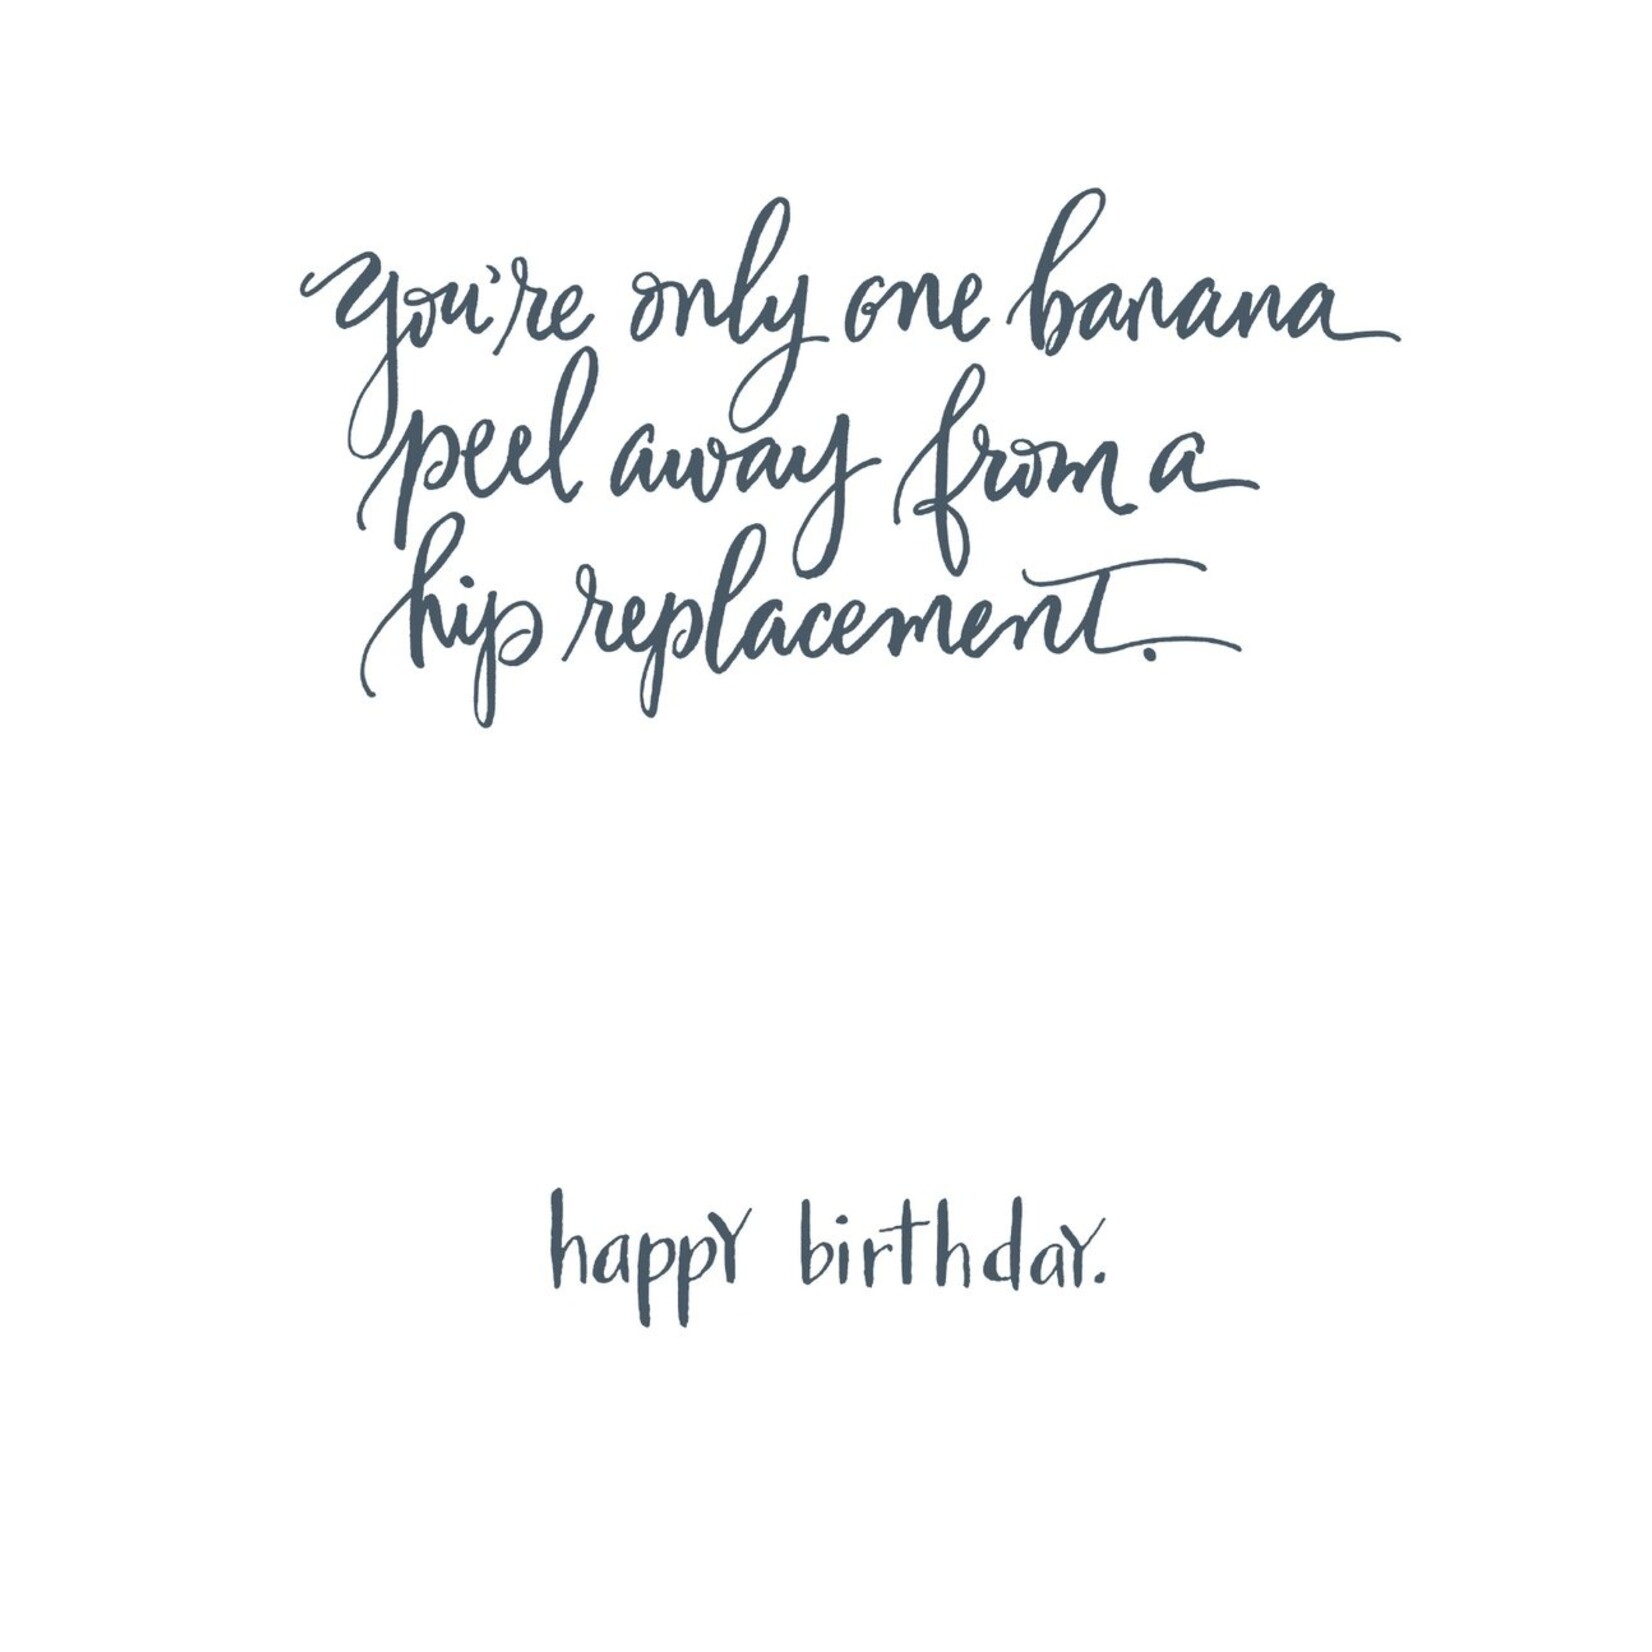 you're only one banana
peel away from a
hip replacement.
happy birthday.